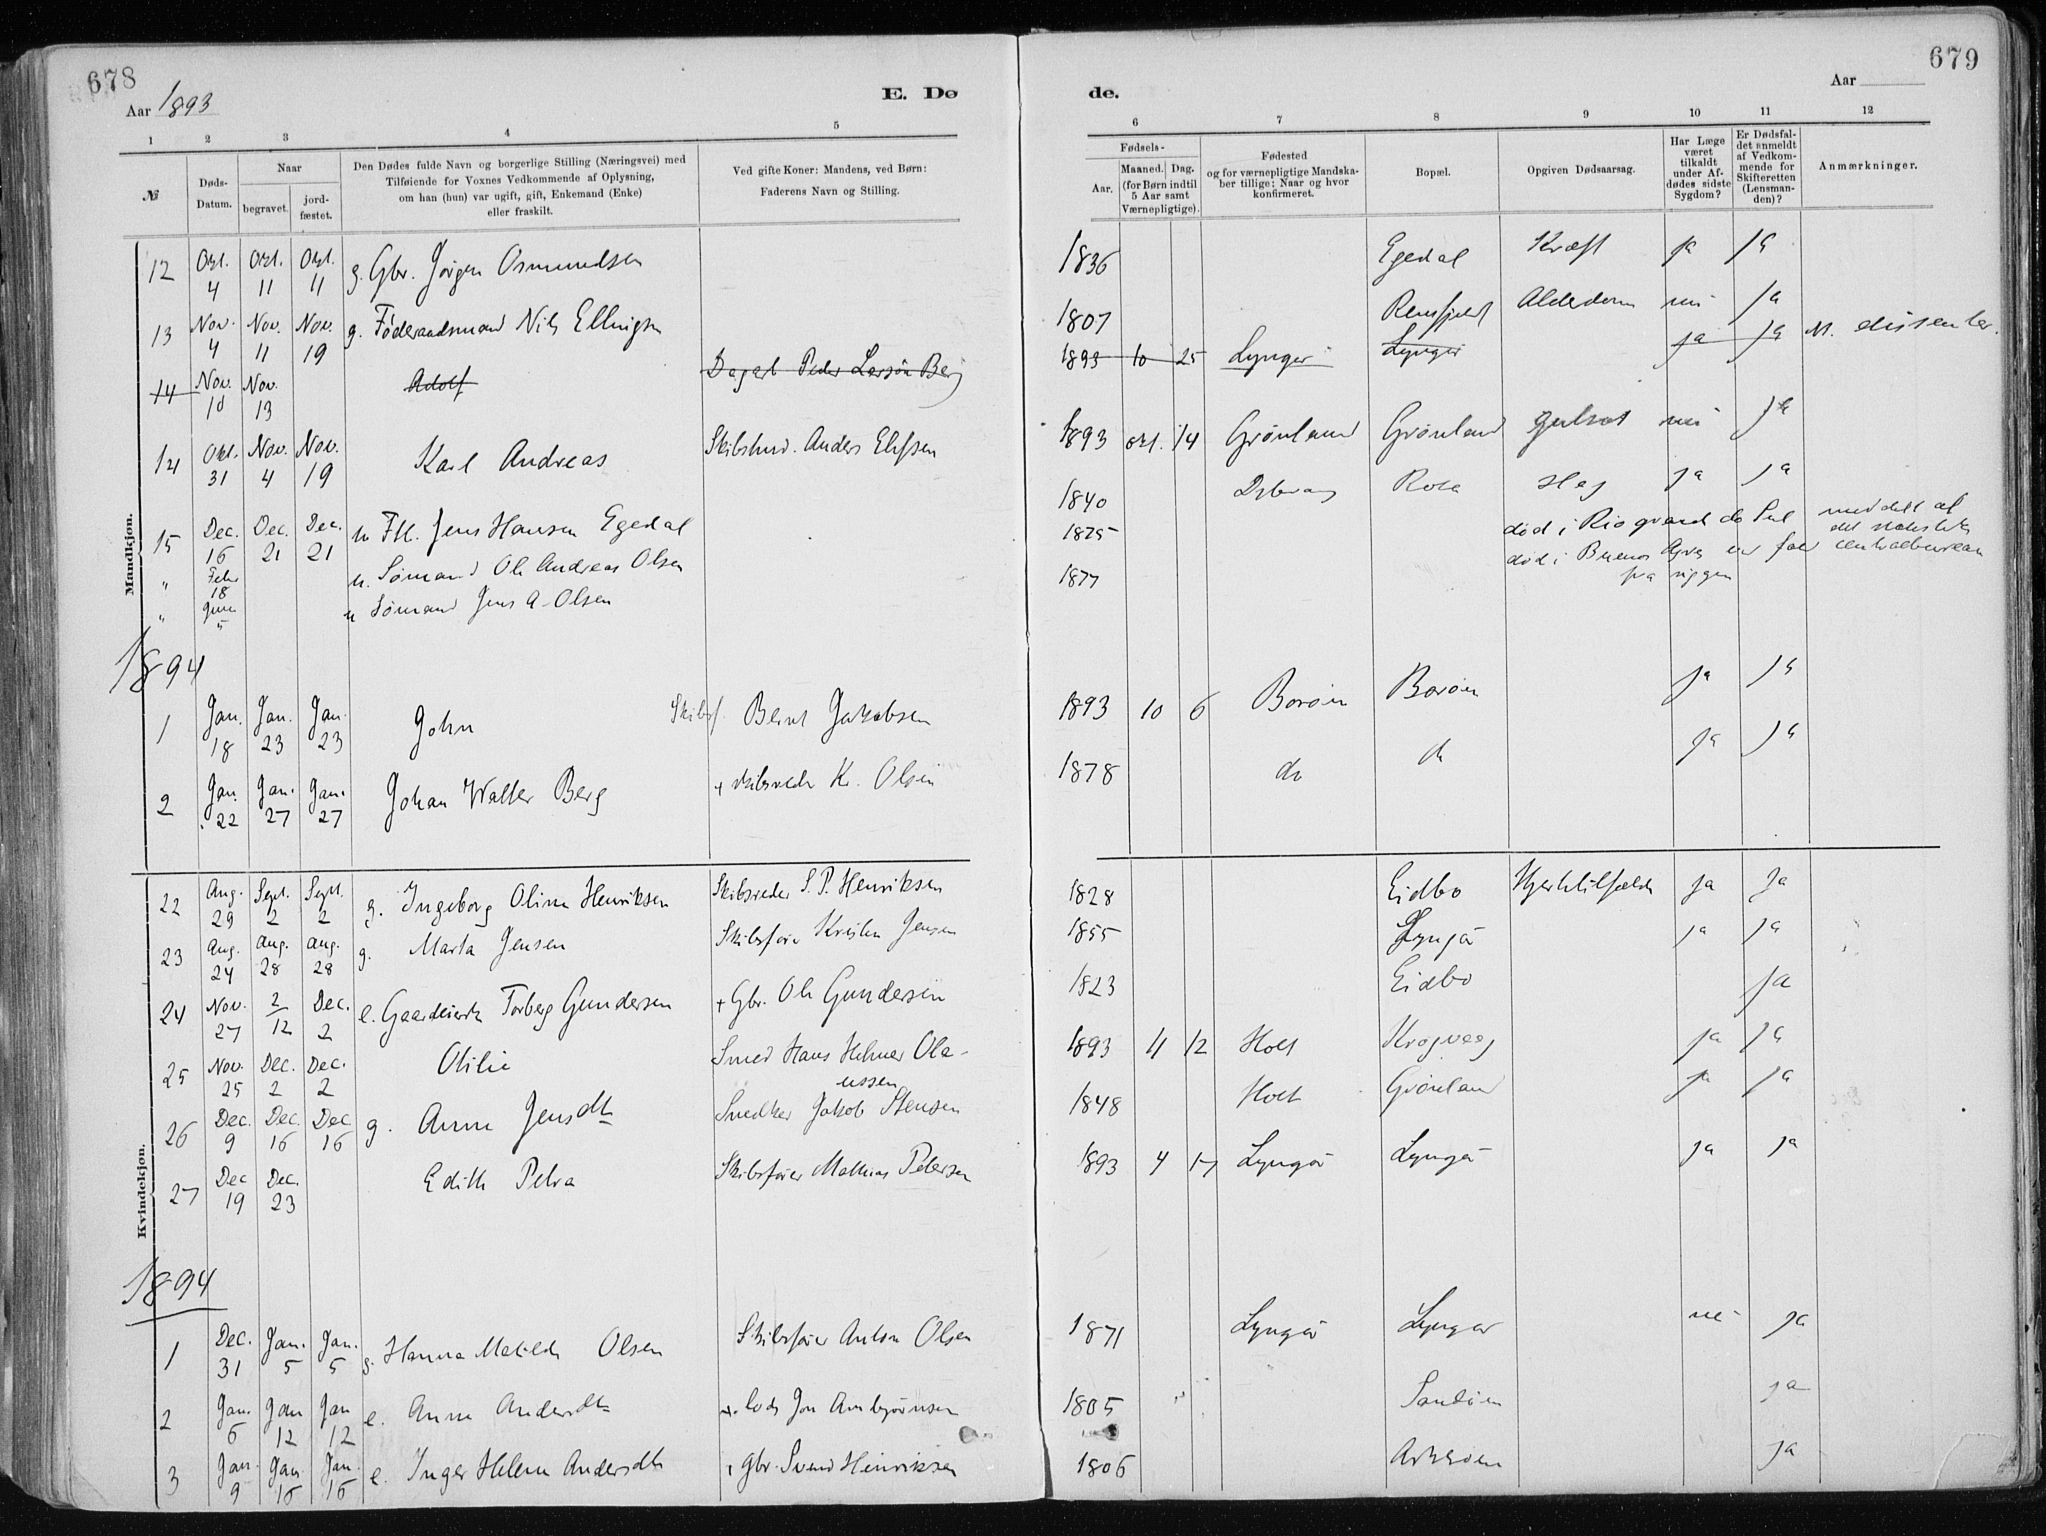 678
679
Aar 1893
E. Dø
de.
Aar
1 2 3 4 5 6 7 8 9 10 11 12
№
Døds-Datum.
Naar
begravet.
jord-fæstet.
Den Dødes fulde Navn og borgerlige Stilling (Næringsvei) med
Tilføiende for Voxnes Vedkommende af Oplysning,
om han (hun) var ugift, gift, Enkemand (Enke)
eller fraskilt.
Ved gifte Koner: Mandens, ved Børn:
Faderens Navn og Stilling.
Fødsels-
Aar.
Maaned. Dag.
(for Børn indtil
5 Aar samt
Værnepligtige).
Fødested
og for værnepligtige Mandska-
ber tillige: Naar og hvor
konfirmeret.
Bopæl.
Opgiven Dødsaarsag.
Har Læge
været
tilkaldt
under Af-
dødes sidste
Sygdom?
Er Dødsfal-
det anmeldt
af Vedkom-
mende for
Skifteretten
(Lensman-
den)?
Anmærkninger.
Mandkjøn.
12 Okt. 4 Okt. 11 Okt. 11 g. Gbr. Jørgen Osmundsen 1836 Egedal Kræft ja ja
13 Nov. 4 Nov. 11 Nov. 19 g. Føderaadsmand Nils Ellingsen 1807 Alderdom nei ja
14 Nov. 10 Nov. 13 Adolf Peder Larsen Berg 1893 10 25 Lyngør Lyngør ja ja M. dissenter.
14 Okt. 31 Nov. 4 Nov. 19 Karl Andreas Anders Elefsen 1893 okt. 14 Grønland Grønland gulsot nei ja
15 Dec. 16 Dec. 21 Dec. 21 u Jens Hansen Egedal 1840 Slag ja ja
" Febr 18 u. Sømand Ole Andreas Olsen 1875 død i Rio grande do Sul meddelt af det statistiske centralbureau
" Juni 5 u Sømand Jens A. Olsen 1877 død i Buenos Ayres ved fald fra riggen
1894
1 Jan. 18 Jan. 23 Jan. 23 John Skibsf. Bernt Jakobsen 1893 10 6 Borøen Borøen ja ja
2 Jan. 22 Jan. 27 Jan. 27 Johan Walter Berg + skibsreder Kr. Olsen 1878 do do ja ja
Kvindekjøn.
22 Aug. 29 Sept. 2 Sept. 2 g. Ingeborg Oline Henriksen Skibsreder S. P. Henriksen 1828 Eidbo Hjertetilfælde ja ja
23 Aug. 24 Aug. 28 Aug. 28 g. Marta Jensen Skibsfører Kristen Jensen 1855 Lyngør ja ja
24 Nov. 27 2/12 Dec. 2 e. Torberg Gundersen + Gbr. Ole Gundersen 1823 Eidbo ja
25 Nov. 25 Dec. 2 Dec. 2 Otilie Smed Hans Helmer Ola-
ussen 1893 11 12 Holt Krogvaag ja ja
26 Dec. 9 Dec. 16 Dec 16 g. Anne Jensdtr Snedker Jakob Stensen 1848 Holt Grønland ja ja
27 Dec 19 Dec. 23 Edith Petra Skibsfører Mathias Petersen 1893 4 17 Lyngør Lyngør ja ja
1894
1 Dec. 31 Jan. 5 Jan. 5 g. Hanna Matilde Olsen Skibsfører Anton Olsen 1871 Lyngør Lyngør nei ja
2 Jan. 6 Jan 12 Jan 12 e. Anne Andersdtr + lods Jon Ambjørnsen 1805 Sandøen ja
3 Jan. 9 Jan. 16 Jan. 16 e. Inger Helene Andersdtr + Gbr. Svend Henriksen 1806 Askerøen ja